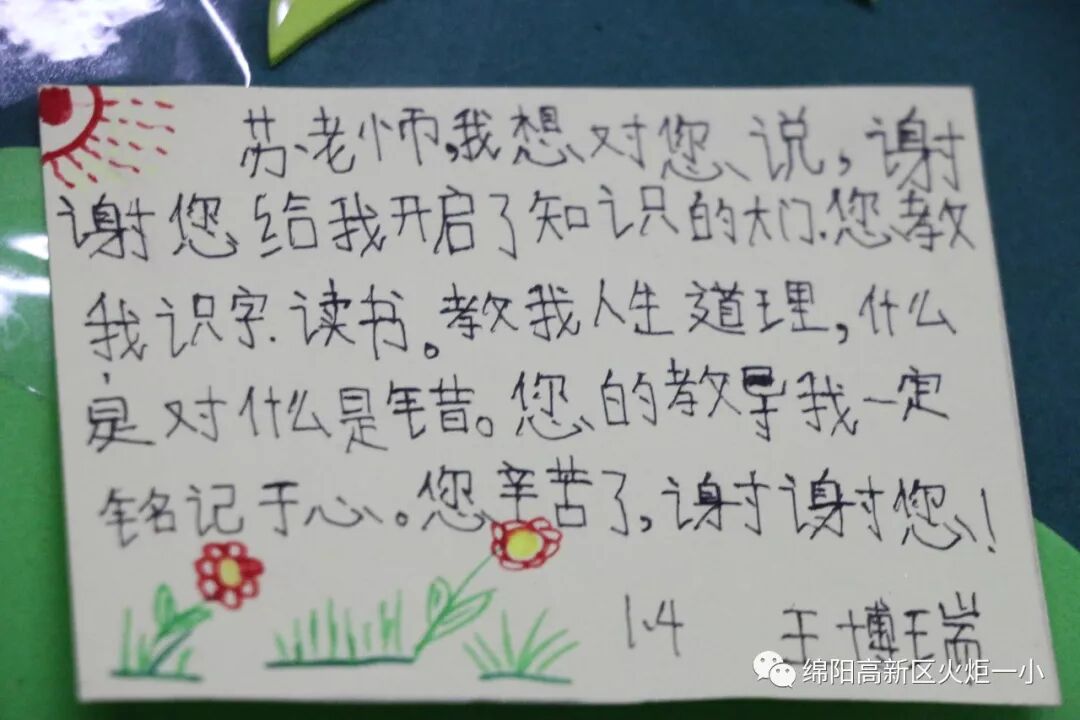 苏老师,我想对您说,谢
谢您给我开启了知识的大门.您教
我识字.读书。教我人生道理,什么
是对什么是错。您的教导我一定
铭记于心。您辛苦了,谢谢您!
1.4 王博瑞
绵阳高新区火炬一小